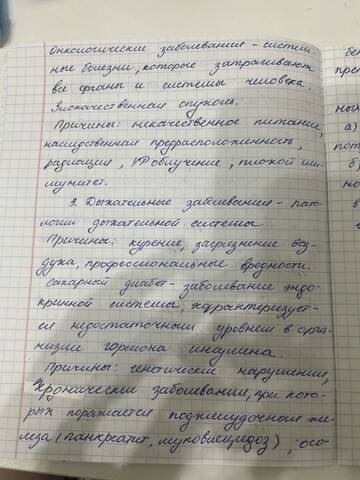 Онкологические заболевания - систем-
ные болезни, которые затрагивают
все органы и системы человека.
Злокачественная опухоль.
Причины: некачественное питание,
наследственная предрасположенность,
радиация, УФ облучение, плохой им-
мунитет.
9. Дыхательные заболевания - пато-
логии дыхательной системы
Причины: курение, загрязнение воз-
духа, профессиональные вредности.
Сахарный диабет - заболевание эндо-
кринной системы, характеризует-
ся недостаточным уровнем в орга-
низме гормона инсулина
Причины: генетические нарушения,
Хронические заболевания, при кото-
рых поражается поджелудочная же-
леза (панкреатит, муковисцидоз), осо-